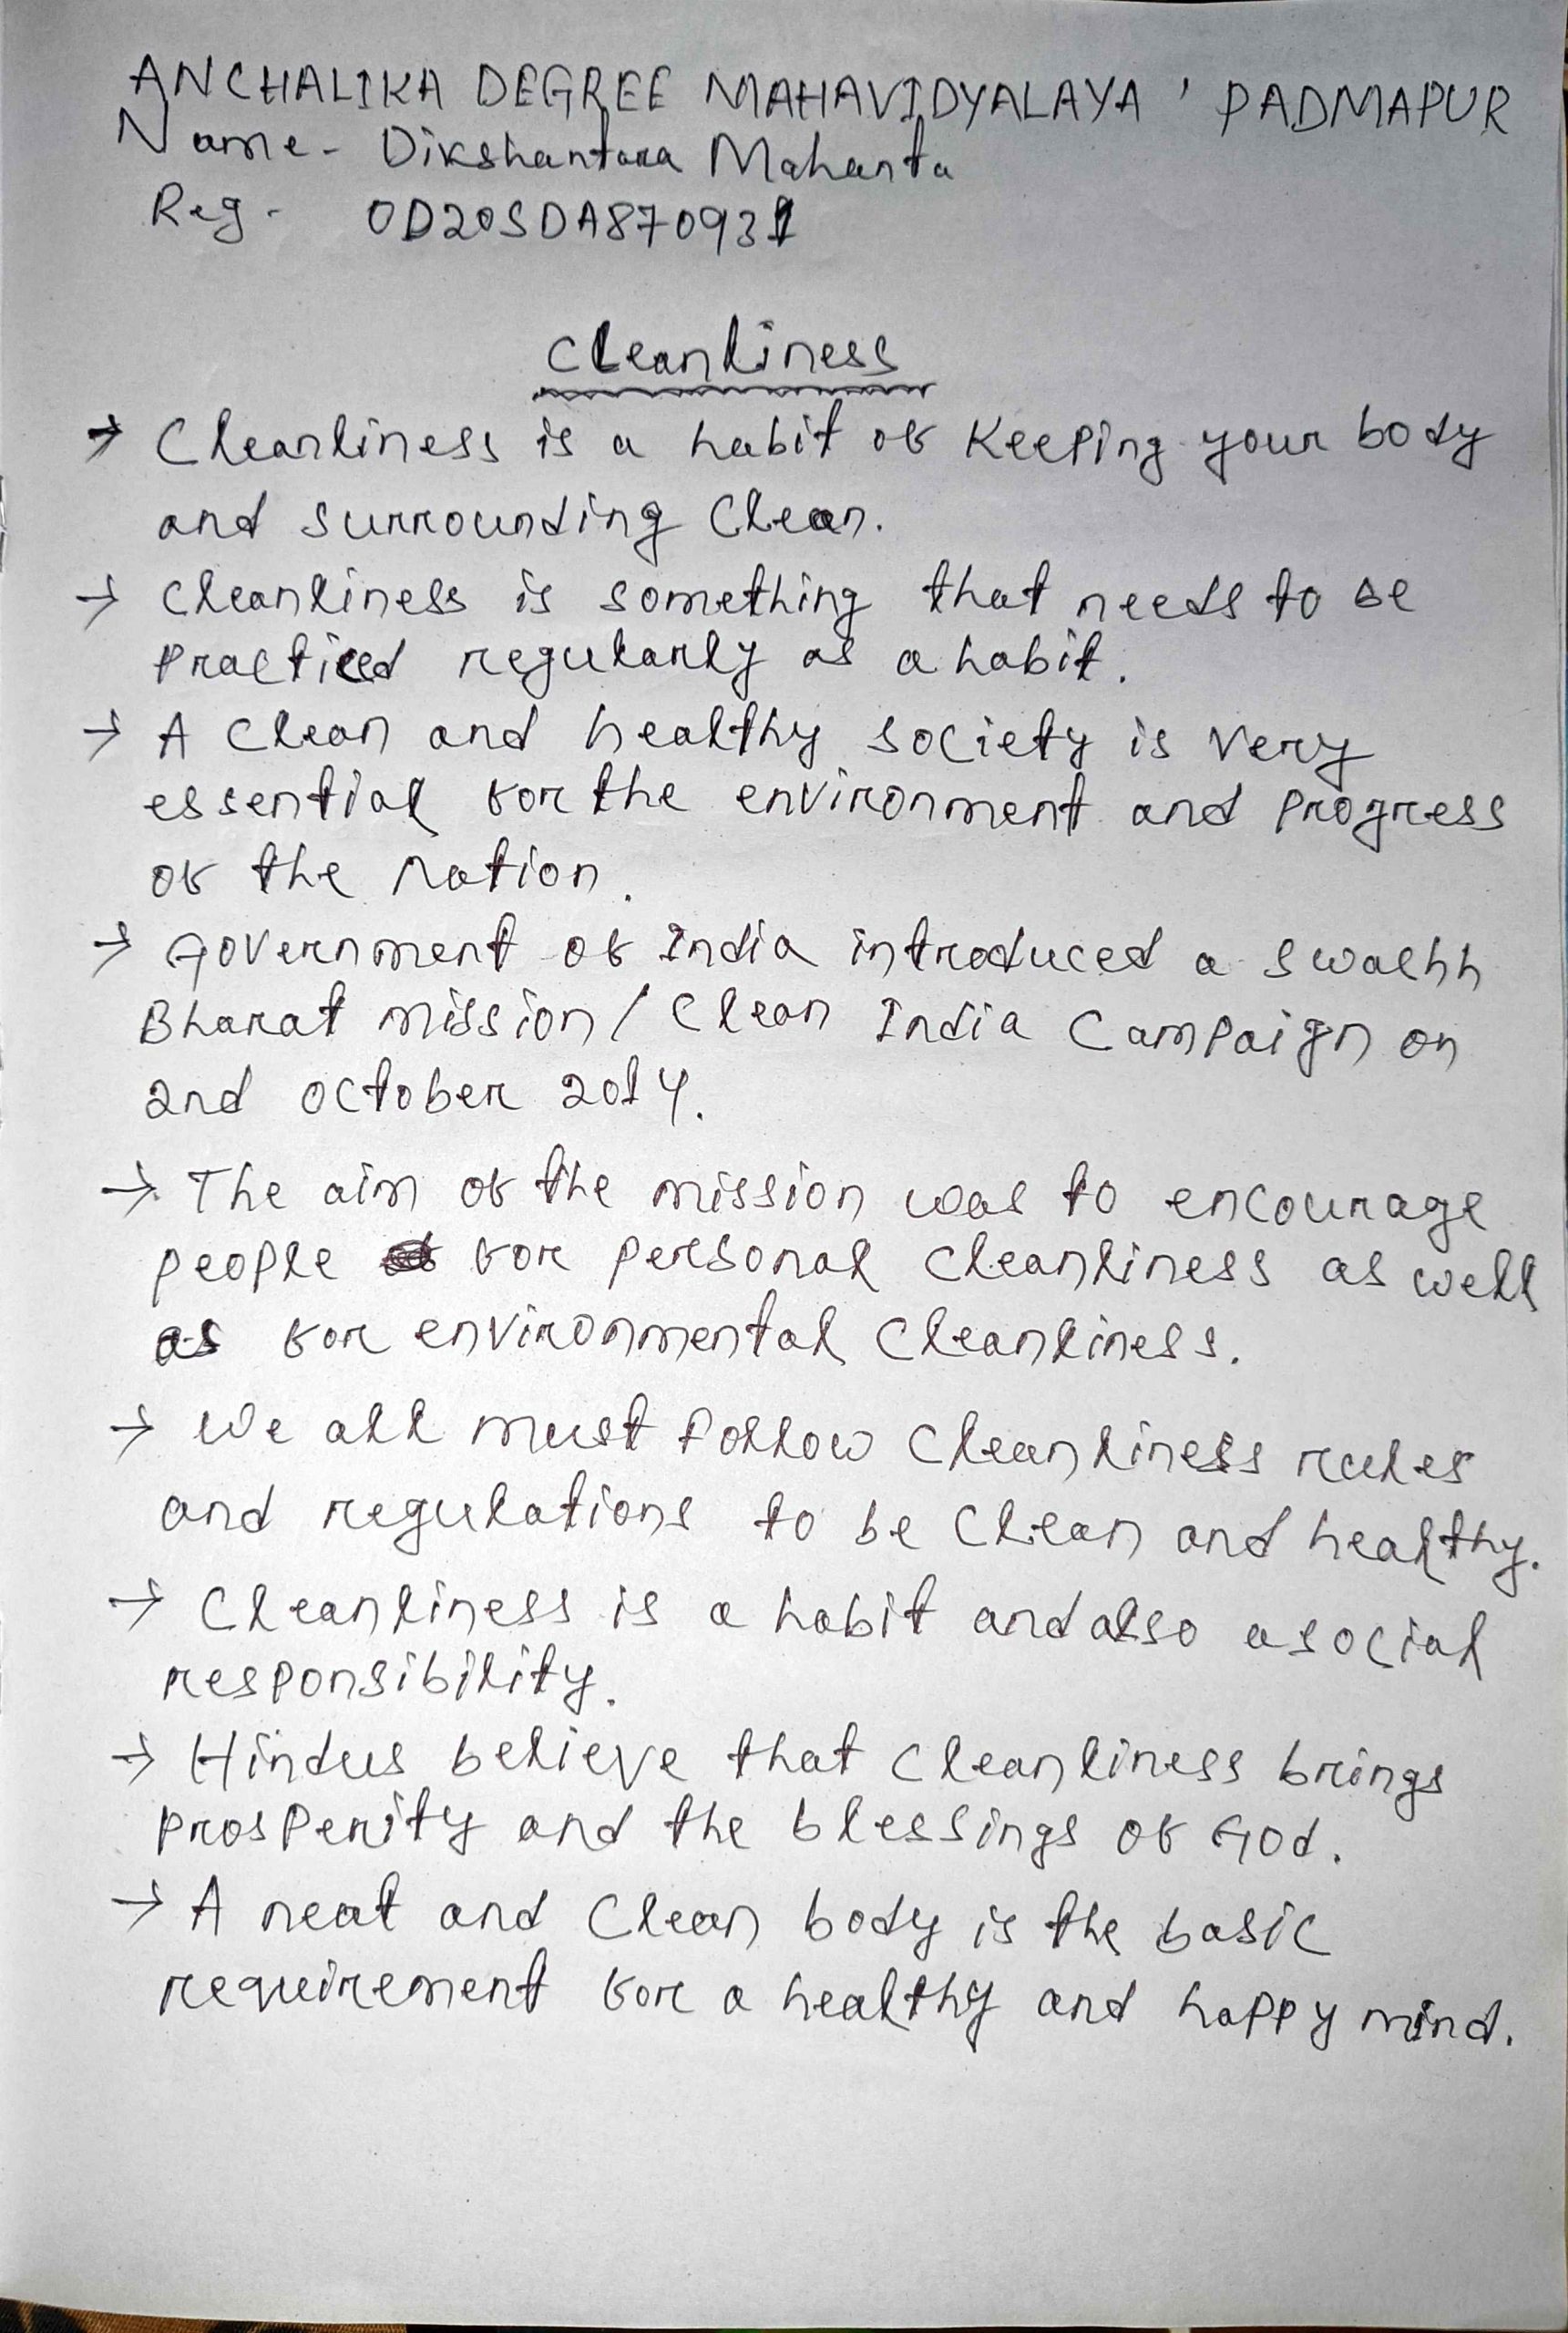 ANCHALIKA DEGREE MAHAVIDYALAYA ' PADMAPUR
Name - Dikshantara Mahanta
Reg - OD20SDA870931
Cleanliness
→ Cleanliness is a habit of keeping your body
and surrounding Clean.
→ Cleanliness is something that needs to be
practiced regularly as a habit.
→ A Clean and healthy society is very
essential for the environment and progress
of the nation.
→ Government of India introduced a swachh
Bharat mission / Clean India Campaign on
2nd october 2014.
→ The aim of the mission was to encourage
people for personal cleanliness as well
as for environmental cleanliness.
→ We all must follow Cleanliness rules
and regulations to be Clean and healthy.
→ Cleanliness is a habit and also a social
responsibility.
→ Hindus believe that cleanliness brings
prosperity and the blessings of God.
→ A neat and Clean body is the basic
requirement for a healthy and happy mind.